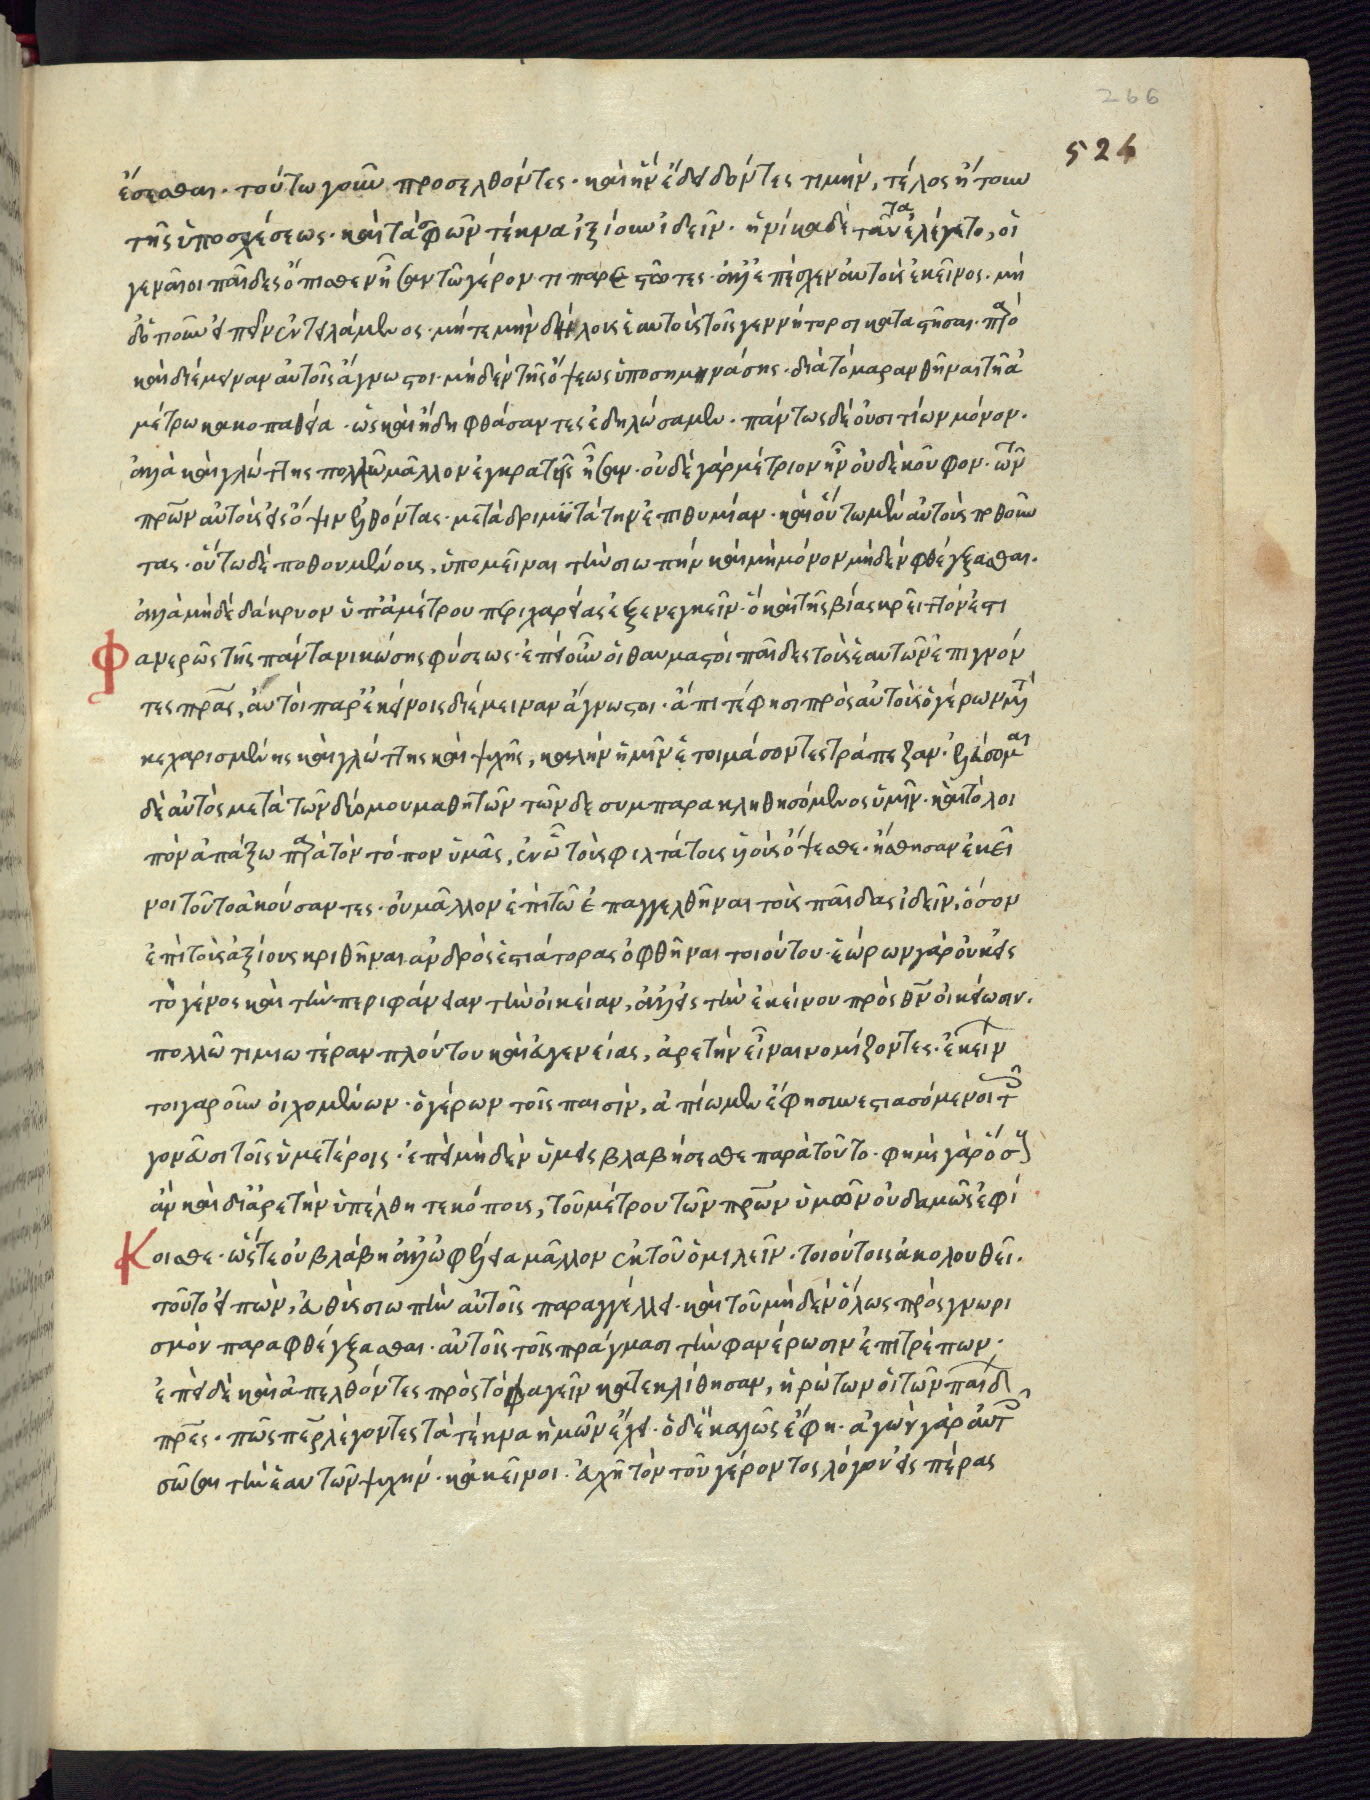 266
526
ἔσεσθαι· τούτω γοῦν προσελθόντες· καὶ ἣν ἔδει δόντες τιμήν, τέλος ἤτουν
τῆς ὑποσχέσεως· καὶ τὰ σφῶν τέκνα ἠξίουν ἰδεῖν· ἡνίκα δὲ ταῦτα ἐλέγετο, οἱ
γενναῖοι παῖδες ὄπισθεν ἦσαν τῶ γέροντι παρεστῶτες· ἀλλ' ἐπέσχεν αὐτοὺς ἐκεῖνος· μή
δέ ποῦν εἰπεῖν ἐντειλάμενος· μήτε μὴν δήλους ἑαυτοὺς τοῖς γεννήτορσι καταστῆσαι· παρὸ
καὶ διέμειναν αὐτοῖς ἄγνωστοι· μηδὲν τῆς ὄψεως ὑποσημηνάσης· διὰ τὸ μαρανθῆναι τῆ ἀ
μέτρω κακοπαθεία· ὡς καὶ ἤδη φθάσαντες ἐδηλώσαμεν· πάντως δὲ οὐ σιτίων μόνον·
ἀλλὰ καὶ γλώττης πολλῶ μᾶλλον ἐγκρατεῖς ἦσαν· οὐδὲ γὰρ μέτριον ἦν οὐδὲ κοῦφον· τῶν
πρων αὐτοῖς εἰς ὄψιν ἐλθόντας· μετὰ δριμυτάτην ἐπιθυμίαν· καὶ οὕτω μὲν αὐτοὺς ποθοῦν
τας· οὕτω δὲ ποθουμένους, ὑπομεῖναι τὴν σιωπὴν καὶ μὴ μόνον μηδὲν φθέγξασθαι·
ἀλλὰ μηδὲ δάκρυον ὑπ' ἀμέτρου περιχαρείας ἐξενεγκεῖν· ὃ καὶ τῆς βίας κρεῖττόν ἐστι
Φανερῶς τῆς πάντα νικώσης φύσεως· ἐπεὶ οὖν οἱ θαυμαστοὶ παῖδες τοὺς ἑαυτῶν ἐπιγνόν
τες πρας, αὐτοὶ παρ' ἐκείνοις διέμειναν ἄγνωστοι· ἄπιτέ φησι πρὸς αὐτοὺς ὁ γέρων μετὰ
κεχαρισμένης καὶ γλώττης καὶ ψυχῆς, καλὴν ἡμῖν ἑτοιμάσοντες τράπεζαν· ἐλεύσομαι
δὲ αὐτὸς μετὰ τῶνδέ μου μαθητῶν τῶνδε συμπαρακληθησόμενος ὑμῖν· καὶ τὸ λοι
πὸν ἀπάξω παρὰ τὸν τόπον ὑμᾶς, ἐν ᾧ τοὺς φιλτάτους υἱοὺς ὄψεσθε· ἥσθησαν ἐκεῖ
νοι τοῦτο ἀκούσαντες· οὐ μᾶλλον ἐπὶ τῶ ἐπαγγελθῆναι τοὺς παῖδας ἰδεῖν, ὅσον
ἐπὶ τοὺς ἀξίους κριθῆναι ἀνδρὸς ἑστιάτορας ὀφθῆναι τοιούτου· ἑώρων γὰρ οὐκ εἰς
τὸ γένος καὶ τὴν περιφάνειαν τὴν οἰκείαν, ἀλλ' εἰς τὴν ἐκείνου πρὸς θν οἰκείωσιν·
πολλῶ τιμιωτέραν πλούτου καὶ εὐγενείας, ἀρετὴν εἶναι νομίζοντες· ἐκείν
τοιγαροῦν οἰχομένων· ὁ γέρων τοῖς παισίν, ἀπίωμεν ἔφη συνεστιασόμενοι τ
γονεῦσι τοῖς ὑμετέροις· ἐπεὶ μηδὲν ὑμεῖς βλαβήσεσθε παρὰ τοῦτο· φημὶ γὰρ ὅσους
ἂν καὶ δι' ἀρετὴν ὑπέλθητε κόπους, τοῦ μέτρου τῶν πρων ὑμῶν οὐδαμῶς ἐφί
Κοισθε· ὥστε οὐ βλάβη ἀλλ' ὠφέλεια μᾶλλον ἐκ τοῦ ὁμιλεῖν· τοιούτοις ἀκολουθεῖ·
τοῦτο εἰπών, εὐθὺς σιωπὴν αὐτοῖς παραγγέλλει· καὶ τοῦ μηδὲν ὅλως πρὸς γνωρι
σμὸν παραφθέγξασθαι· αὐτοῖς τοῖς πράγμασι τὴν φανέρωσιν ἐπιτρέπων·
ἐπεὶ δὲ καὶ ἀπελθόντες πρὸς τὸ φαγεῖν κατεκλίθησαν, ἠρώτων οἱ τῶν παίδ
πρες· πῶς περ λέγοντες τὰ τέκνα ἡμῶν ἔχει· ὁ δὲ καλῶς ἔφη· ἀγὼν γὰρ αὐτ
σῶσαι τὴν ἑαυτῶν ψυχήν· κἀκεῖνοι· εὐχῆ τὸν τοῦ γέροντος λόγον εἰς πέρας